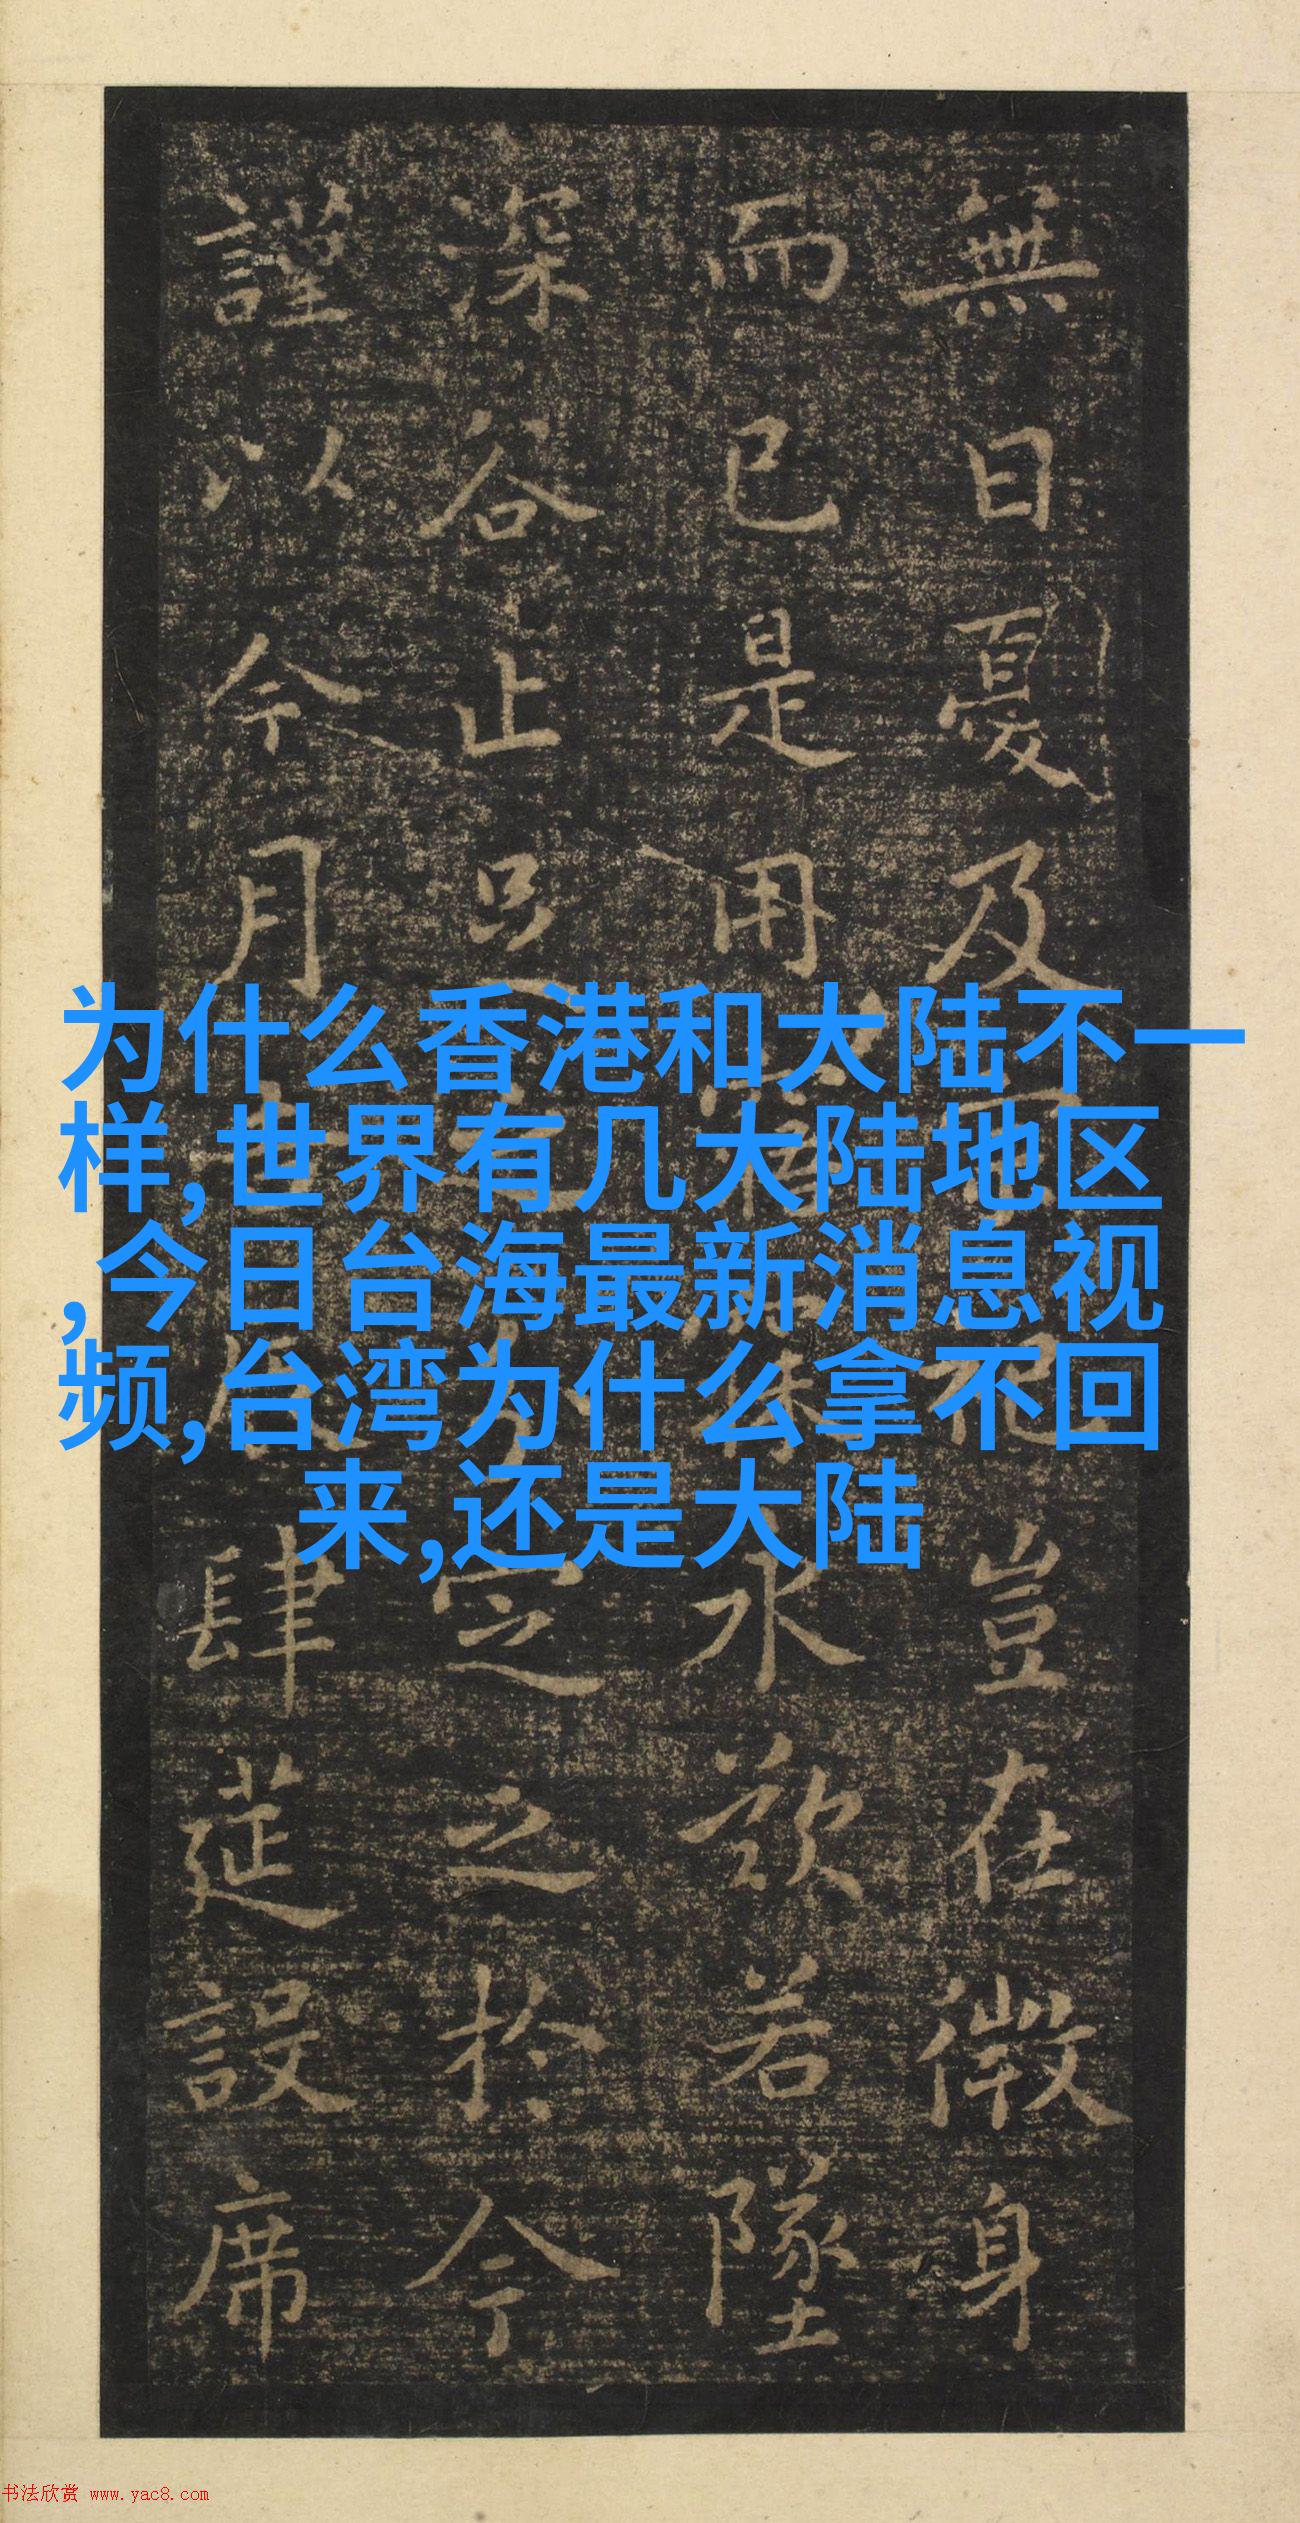 無日憂及豈在微身
而已是用寤寐永歎若墜
深谷止足之分定之於今
謹以今月吉辰肆筵設席
为什么香港和大陆不一
样,世界有几大陆地区
,今日台海最新消息视
频,台湾为什么拿不回
来,还是大陆
书法欣赏 www.yac8.com